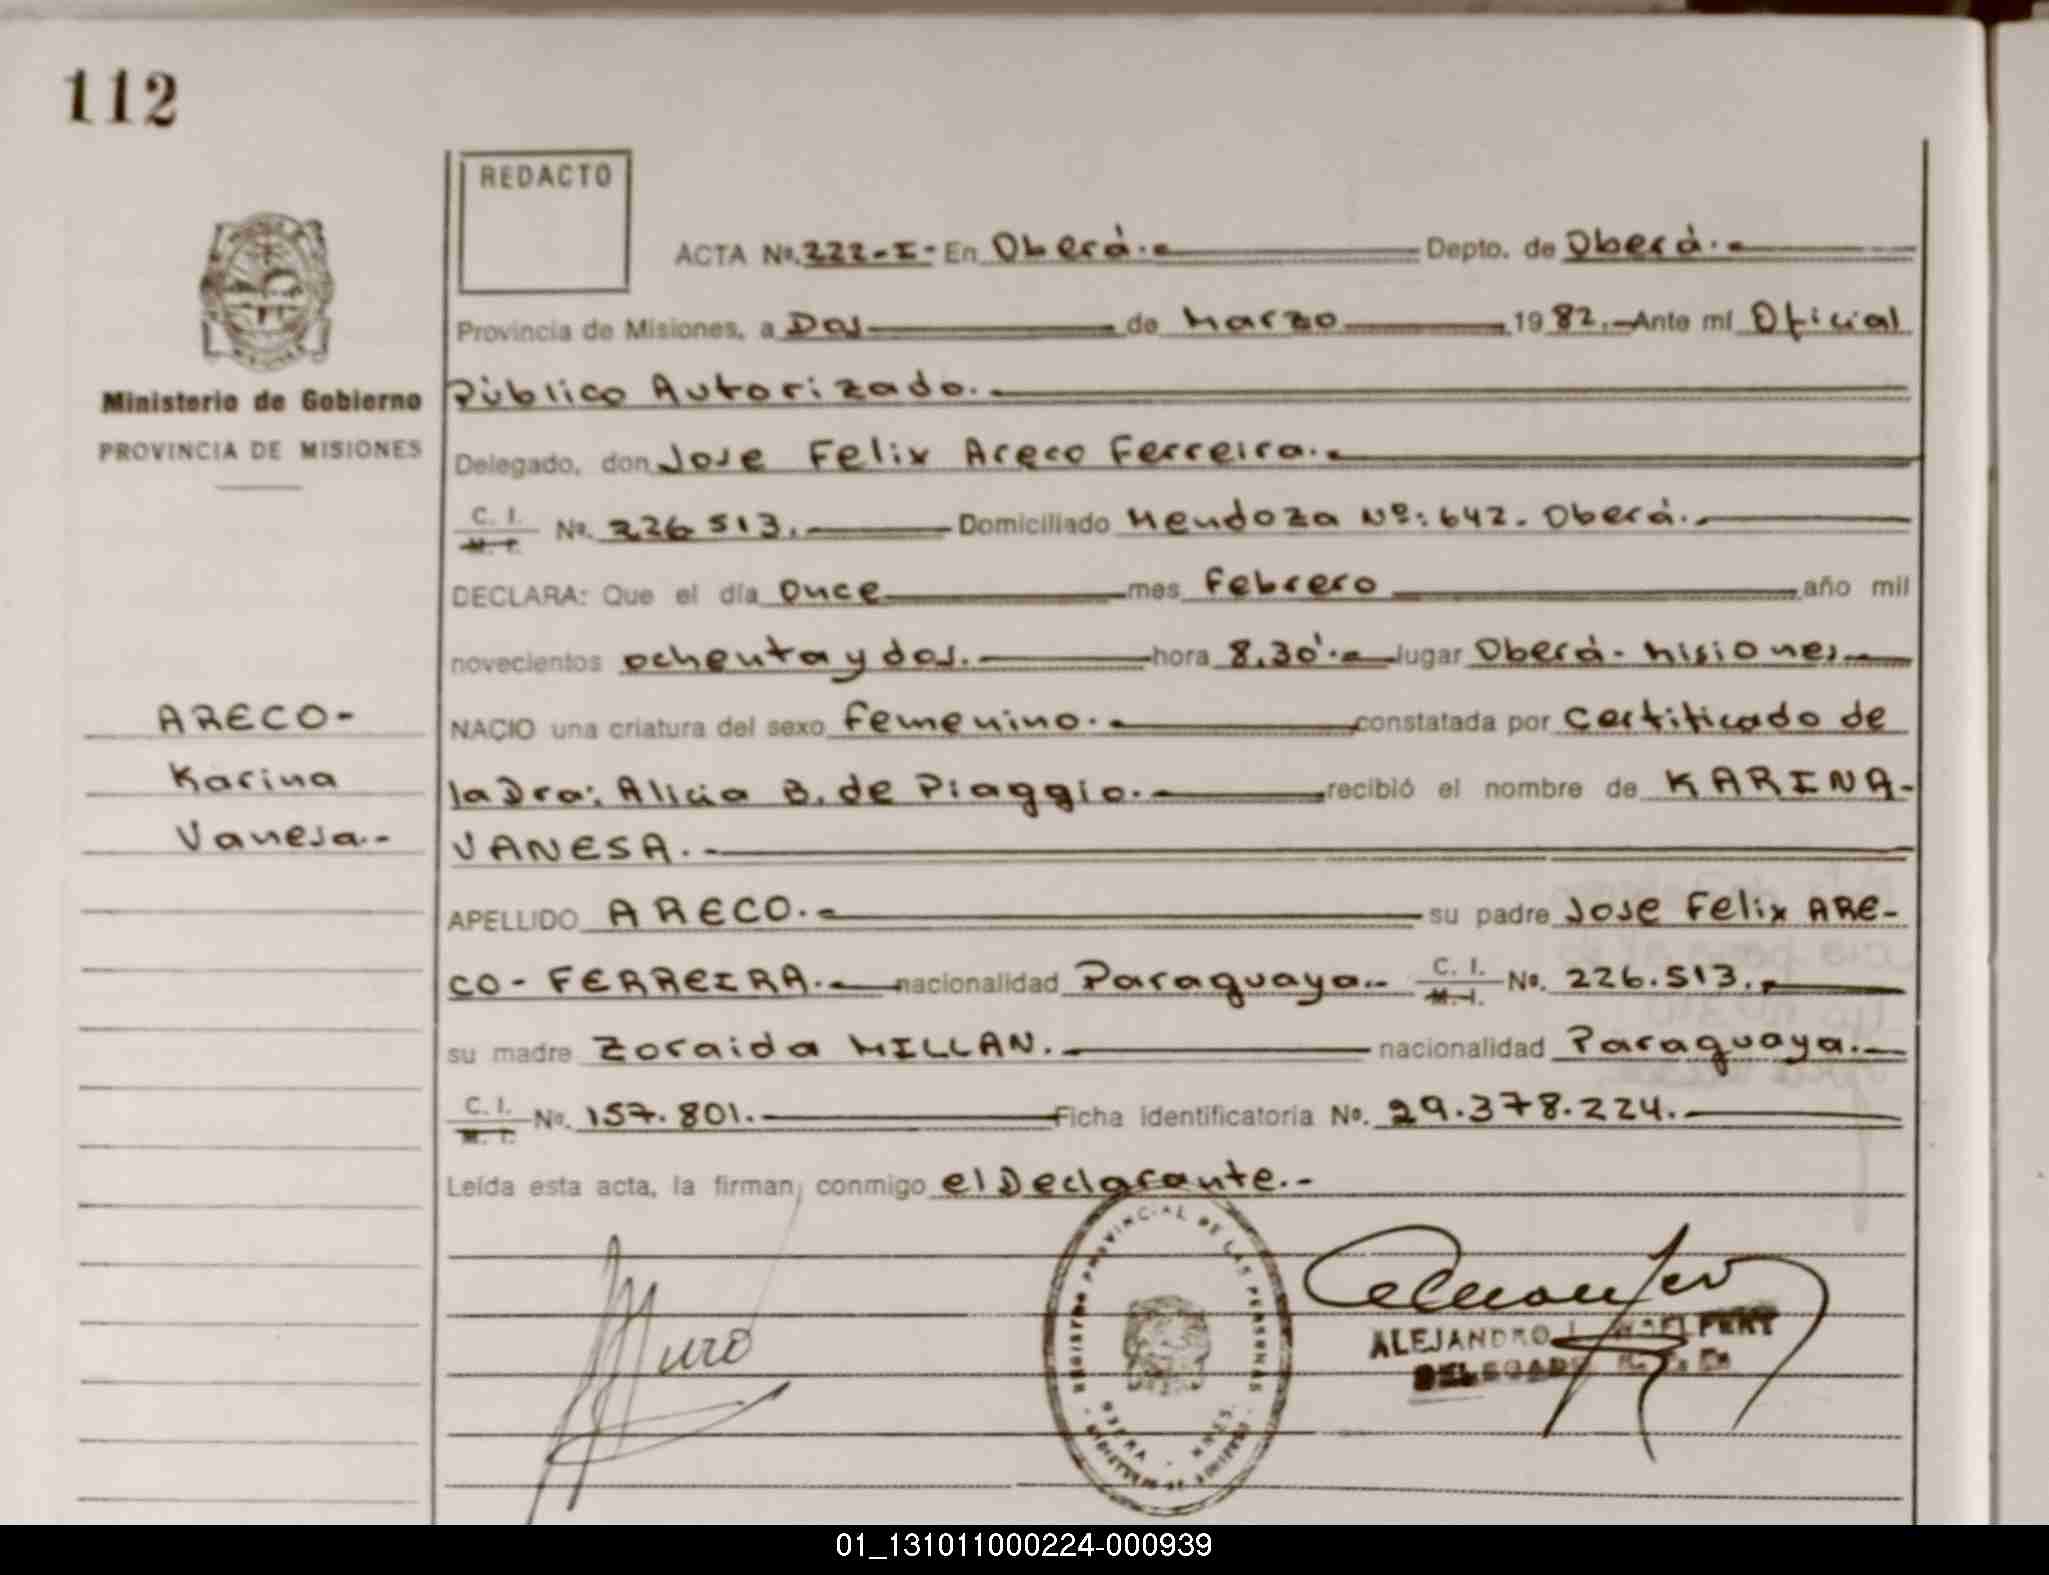 112
REDACTO
ACTA No. 222-I- En Oberá.- Depto. de Oberá.-
Provincia de Misiones, a Dos de Marzo 1982.- Ante mí Oficial
Ministerio de Gobierno
Público Autorizado.-
PROVINCIA DE MISIONES
Delegado, don Jose Felix Areco Ferreira.-
C. I. M. I. No. 226513.- Domiciliado Mendoza Nº: 642. Oberá.-
DECLARA: Que el día Once mes Febrero año mil
novecientos ochenta y dos.- hora 8,30'.- lugar Oberá- Misiones.-
ARECO-
NACIO una criatura del sexo Femenino.- constatada por Certificado de
Karina
la Dra: Alicia B. de Piaggio.- recibió el nombre de KARINA-
Vanesa.-
VANESA.-
APELLIDO ARECO.- su padre Jose Felix ARE-
CO- FERREIRA.- nacionalidad Paraguaya.- C. I. M. I. No. 226.513.-
su madre Zoraida MILLAN.- nacionalidad Paraguaya.-
C. I. M. I. No. 157.801.- Ficha identificatoria No. 29.378.224.-
Leída esta acta, la firman, conmigo el Declarante.-
REGISTRO PROVINCIAL DE LAS PERSONAS
OBERA - MNES.
ALEJANDRO
DELEGADO
01_131011000224-000939